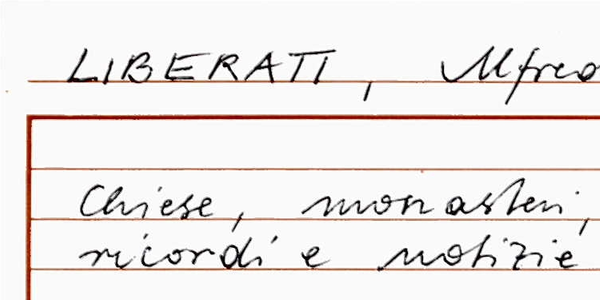 LIBERATI, Alfred
Chiese, monasteri,
ricordi e notizie